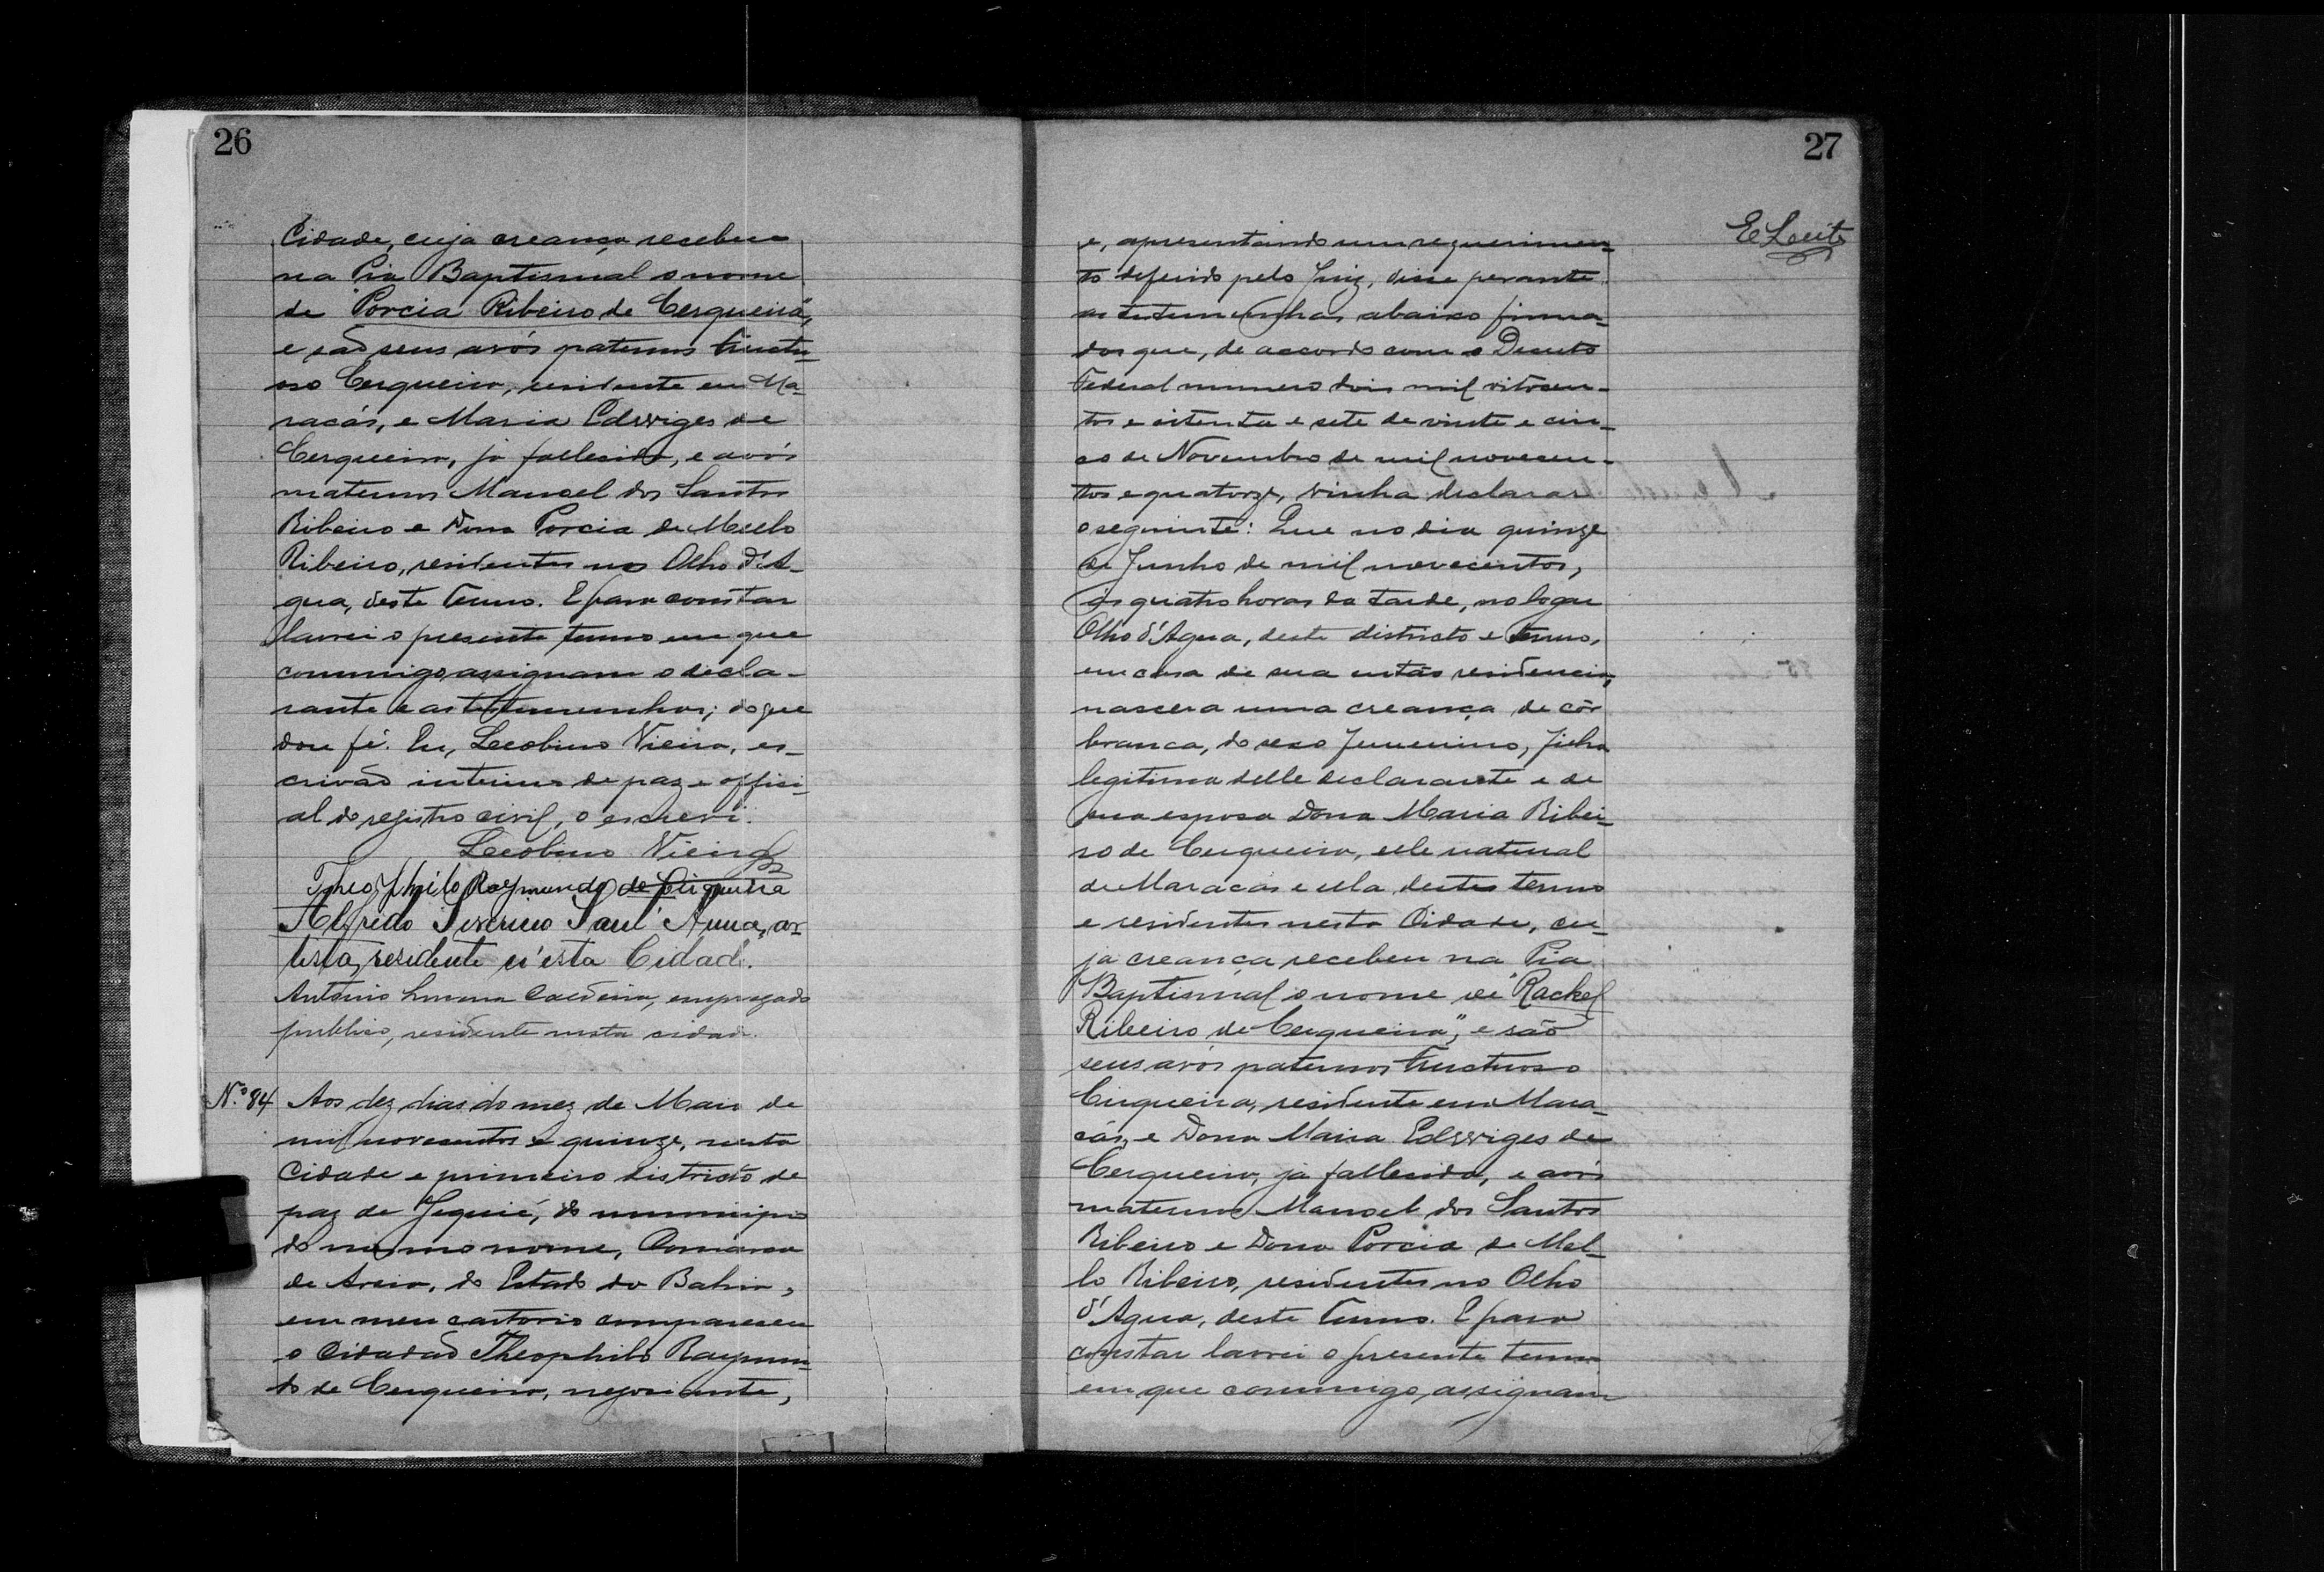 26
Cidade, cuja creança recebeu
na Pia Baptismal o nome
de "Porcia Ribeiro de Cerqueira",
e são seus avós paternos Fructu-
oso Cerqueira, residente em Ma-
racás, e Maria Edwiges de
Cerqueira, já fallecida, e avós
maternos Manoel dos Santos
Ribeiro e Dona Porcia de Mello
Ribeiro, residentes no Olho d'A-
gua, deste Termo. E para constar
lavrei o presente termo em que
commigo assignam o decla-
rante e as testemunhas; do que
dou fé. Eu, Lecobino Vieira, es-
crivão interino de paz e offici-
al do registro civil, o escrevi.
Lecobino Vieira
Theophilo Raymundo de Cirqueira
Alfredo Siverino Sant'Anna, ar-
tista, residente n'esta Cidade.
Antonio Caldeira, empregado
publico, residente nesta cidade.
N.º 84 Aos dez dias do mez de Maio de
mil novecentos e quinze, nesta
Cidade e primeiro districto de
paz de Jequié, do municipio
do mesmo nome, Comarca
de Areia, do Estado da Bahia,
em meu cartorio compareceu
o Cidadão Theophilo Raymun-
do de Cerqueira, negociante,
27
E Leite
e, apresentando um requerimen-
to deferido pelo Juiz, disse perante
as testemunhas abaixo firma-
das que, de accordo com o Decreto
Federal numero dois mil oitocen-
tos e oitenta e sete de vinte e cin-
co de Novembro de mil novecen-
tos e quatorze, vinha declarar
o seguinte: Que no dia quinze
de Junho de mil novecentos,
ás quatro horas da tarde, no logar
Olho d'Agua, deste districto e termo,
em casa de sua então residencia,
nascera uma creança de côr
branca, do sexo femenino, filha
legitima delle declarante e de
sua esposa Dona Maria Ribei-
ro de Cerqueira, elle natural
de Maracás e ella deste termo
e residentes nesta Cidade, cu-
ja creança recebeu na Pia
Baptismal o nome de "Rachel
Ribeiro de Cerqueira", e são
seus avós paternos Fructuoso
Cirqueira, residente em Mara-
cás, e Dona Maria Edwiges de
Cerqueira, já fallecida, e avós
maternos Manoel dos Santos
Ribeiro e Dona Porcia de Mel-
lo Ribeiro, residentes no Olho
d'Agua, deste Termo. E para
constar lavrei o presente termo
em que commigo assignam